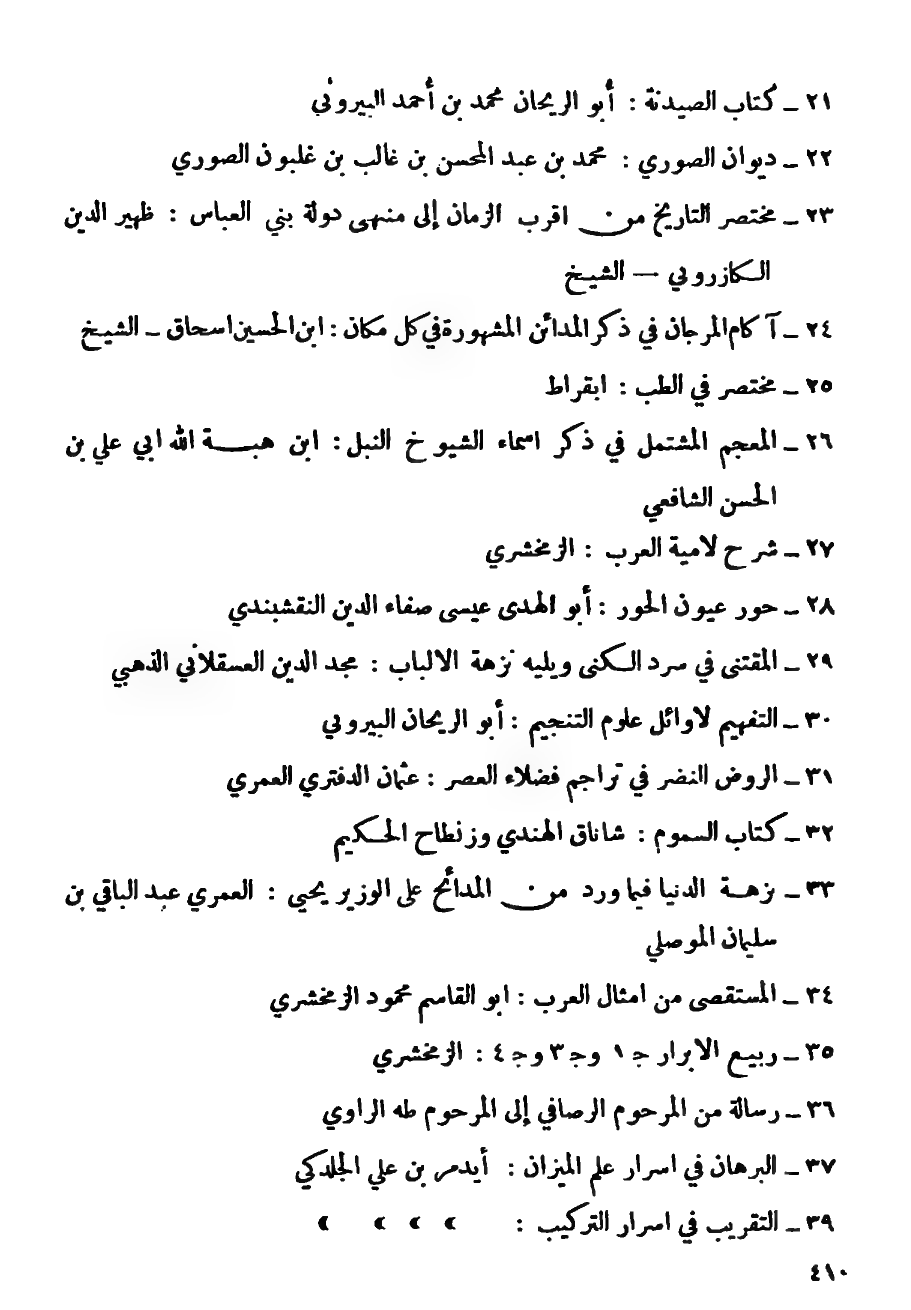 ٢١ ـ كتاب الصيدنة : أبو الريحان محمد بن أحمد البيروني
٢٢ ـ ديوان الصوري : محمد بن عبد المحسن بن غالب بن غلبون الصوري
٢٣ ـ مختصر التاريخ من اقرب الزمان إلى منتهى دولة بني العباس : ظهير الدين
الكازروني — الشيخ
٢٤ ـ آكام المرجان في ذكر المدائن المشهورة في كل مكان : ابن الحسين اسحاق ـ الشيخ
٢٥ ـ مختصر في الطب : ابقراط
٢٦ ـ المعجم المشتمل في ذكر اسماء الشيوخ النبل : ابن هبة الله ابي علي بن
الحسن الشافعي
٢٧ ـ شرح لامية العرب : الزمخشري
٢٨ ـ حور عيون الحور : أبو الهدى عيسى صفاء الدين النقشبندي
٢٩ ـ المقتنى في سرد الكنى ويليه نزهة الالباب : مجد الدين العسقلاني الذهبي
٣٠ ـ التفهيم لاوائل علوم التنجيم : أبو الريحان البيروني
٣١ ـ الروض النضر في تراجم فضلاء العصر : عثمان الدفتري العمري
٣٢ ـ كتاب السموم : شاناق الهندي وزنطاح الحكيم
٣٣ ـ نزهة الدنيا فيما ورد من المدائح على الوزير يحيى : العمري عبد الباقي بن
سليمان الموصلي
٣٤ ـ المستقصى من امثال العرب : ابو القاسم محمود الزمخشري
٣٥ ـ ربيع الابرار ج ١ وج ٣ وج ٤ : الزمخشري
٣٦ ـ رسالة من المرحوم الرصافي إلى المرحوم طه الراوي
٣٧ ـ البرهان في اسرار علم الميزان : أيدمر بن علي الجلدكي
٣٩ ـ التقريب في اسرار التركيب : » » » »
٤١٠